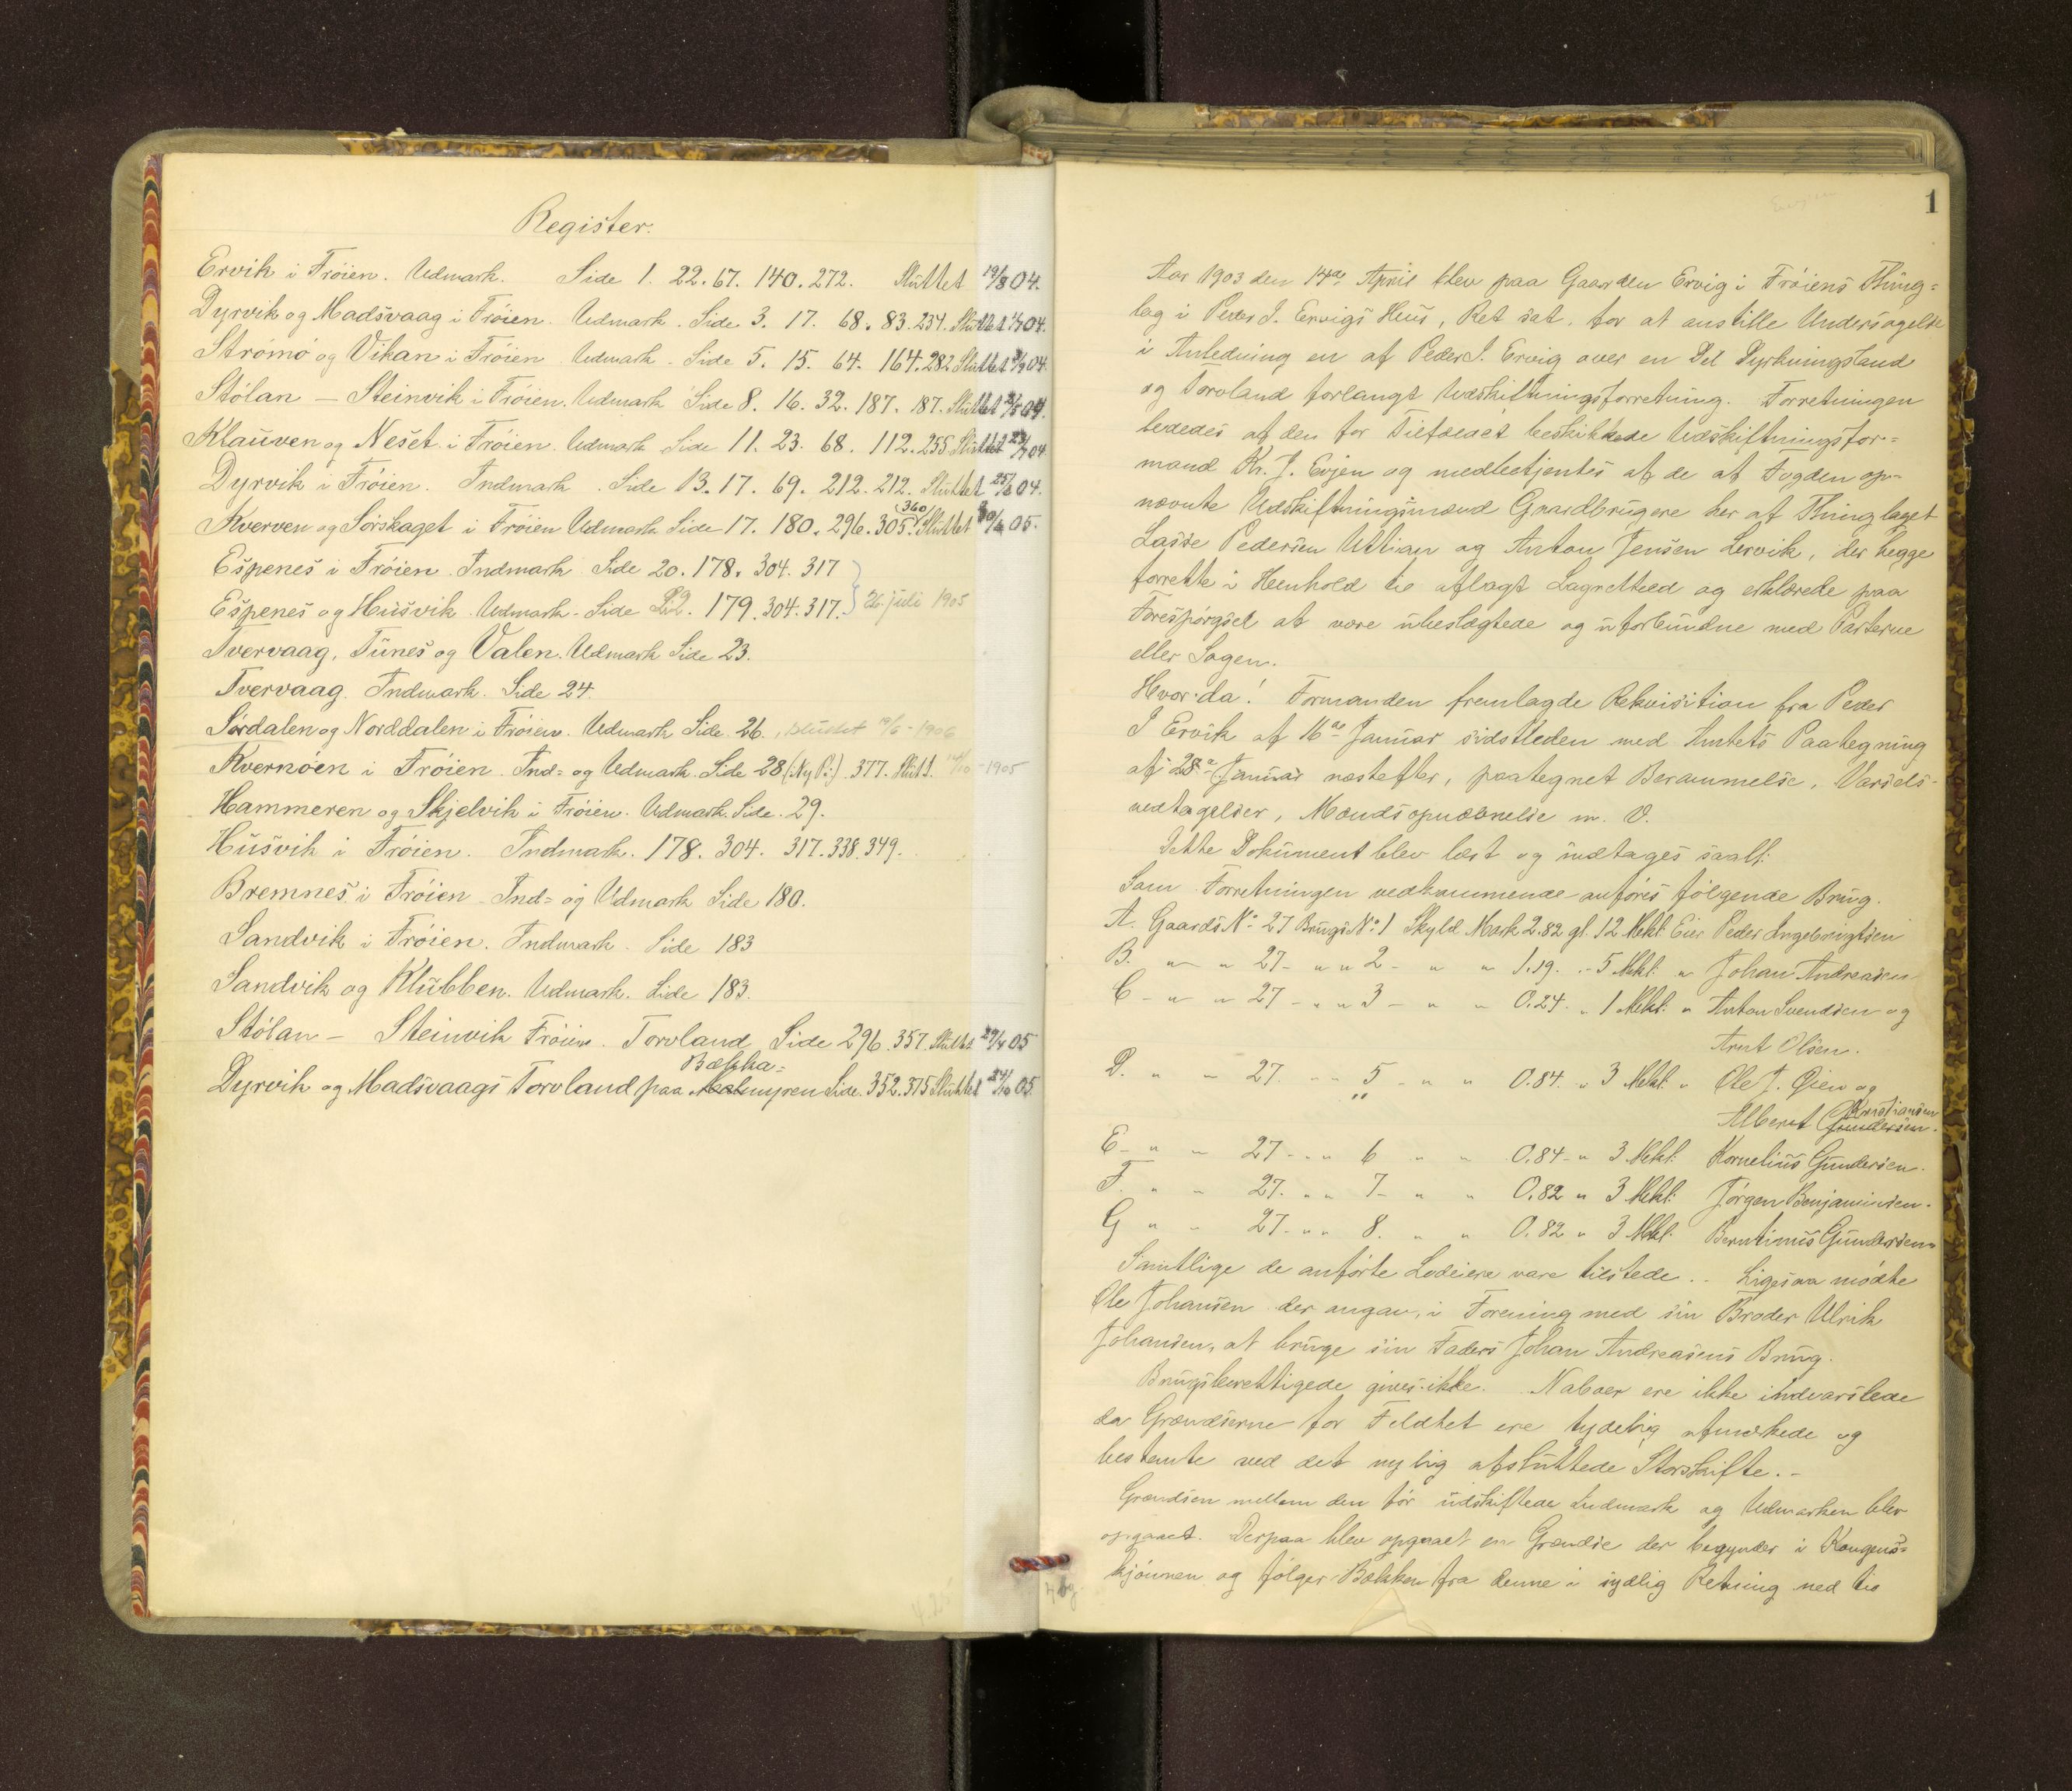 Register.
Ervik i Fröien. Udmark. Side 1. 22. 67. 140. 272. Sluttet 19/8 04.
Dyrvik og Madsvaag i Fröien. Udmark. Side 3. 17. 68. 83. 234. Sluttet 04.
Strömö og Vikan i Fröien Udmark - Side 5. 15. 64. 164. 282 Sluttet 04.
Stölan - Steinvik i Fröien. Udmark Side 8. 16. 32. 187. 187. Sluttet 04.
Klauven og Neset i Fröien. Udmark Side 11. 23. 68. 112. 255 Sluttet 04
Dyrvik i Fröien. Indmark. Side 13. 17. 69. 212. 212. Sluttet 25/8 04.
Kverven og Sörskaget i Fröien Udmark Side 17. 180. 296. 305. 360 Sluttet 05.
Espenes i Fröien. Indmark Side 20. 178. 304. 317
Espenes og Husvik. Udmark - Side 179. 304. 317. 26. juli 1905
Tvervaag, Tunes og Valen. Udmark Side 23.
Tvervaag. Indmark. Side 24.
Sördalen og Norddalen i Fröien. Udmark Side 26. sluttet 1906
Kvernöen i Fröien. Ind= og Udmark. Side 28 377. Slutt. 1905
Hammeren og Skjelvik i Fröien. Udmark. Side. 29.
Husvik i Fröien. Indmark. 178. 304. 317. 338. 349.
Bremnes i Fröien - Ind= og Udmark Side 180.
Sandvik i Fröien. Indmark - Side 183
Sandvik og Klubben. Udmark. Side 183.
Stölan - Steinvik Fröien. Torvland Side 296. 357. Sluttet 05
Bækka=
Dyrvik og Madsvaags Torvland paa myren Side. 352. 375 Sluttet 24/10 05.
1
Aar 1903 den 14de April blev paa Gaarden Ervig i Fröiens Thing=
lag i Peder I. Ervigs Hus, Ret sat for at anstille Undersøgelse
i Anledning en af Peder I. Ervig over en Del Dyrkningsland
og Torvland forlangt Udskiftningsforretning. Forretningen
lededes af den for Tilfældet beskikkede Udskiftningsfor=
mand Kr. J. Evjen og medbetjentes af de af Fogden op=
nævnte Udskiftningsmænd Gaardbrugere her af Thinglaget
Lasse Pedersen Uttian og Anton Jensen Lervik, der begge
forrette i Henhold til aflagt Lagretteed og erklærede paa
Forespørgsel at være ubeslægtede og uforbundne med Parterne
eller Sagen.
Hvor da! Formanden fremlagde Rekvisition fra Peder
I Ervik af 16de Januar sidstleden med Amtets Paategning
af 28de Januar næstefter, paategnet Berammelse, Varsels-
vedtagelser, Mændsopnævnelse m. V.
Dette Dokument blev læst og indtages saal:
Som Forretningen vedkommende anföres fölgende Brug.
A. Gaards No 27 Brugs No 1 Skyld Mark 2.82 gl. 12 Mkl: Eier Peder Ingebrigtsen
B. " " 27 - " " 2 - " " 1.19. - 5 Mkl: " Johan Andreasen
C - " " 27 - " " 3 - " " 0.24. " 1 Mkl: " Anton Svendsen og
Arnt Olsen.
D. " " 27. - - 5 - " " 0.84. " 3 Mkl. " Ole J. Øien og
Kristiansen
Albert Gundersen.
E - " " 27 - - " 6 " " 0.84 - " 3 Mkl. Kornelius Gundersen.
F. " " 27. " " 7 - " " 0.82 " 3 Mkl: Jörgen Benjaminsen.
G " " 27 - " " 8. " " 0.82 " 3 Mkl. Berntinus Gundersen
Samtlige de anförte Lodeiere vare tilstede. - Ligesaa mödte
Ole Johansen der angav, i Forening med sin Broder Ulrik
Johansen, at bruge sin Faders Johan Andreasens Brug.
Brugsberettigede gives ikke. Naboer ere ikke indvarslede
da Grændserne for Feldtet ere tydelig afmærkede og
bestemte ved det nylig afsluttede Storskifte. -
Grændsen mellem den før udskiftede Indmark og Udmarken blev
opgaaet. Derpaa blev opgaaet en Grændse der begynder i Kongens=
kjönnen og fölger Bækken fra denne i sydlig Retning ned til